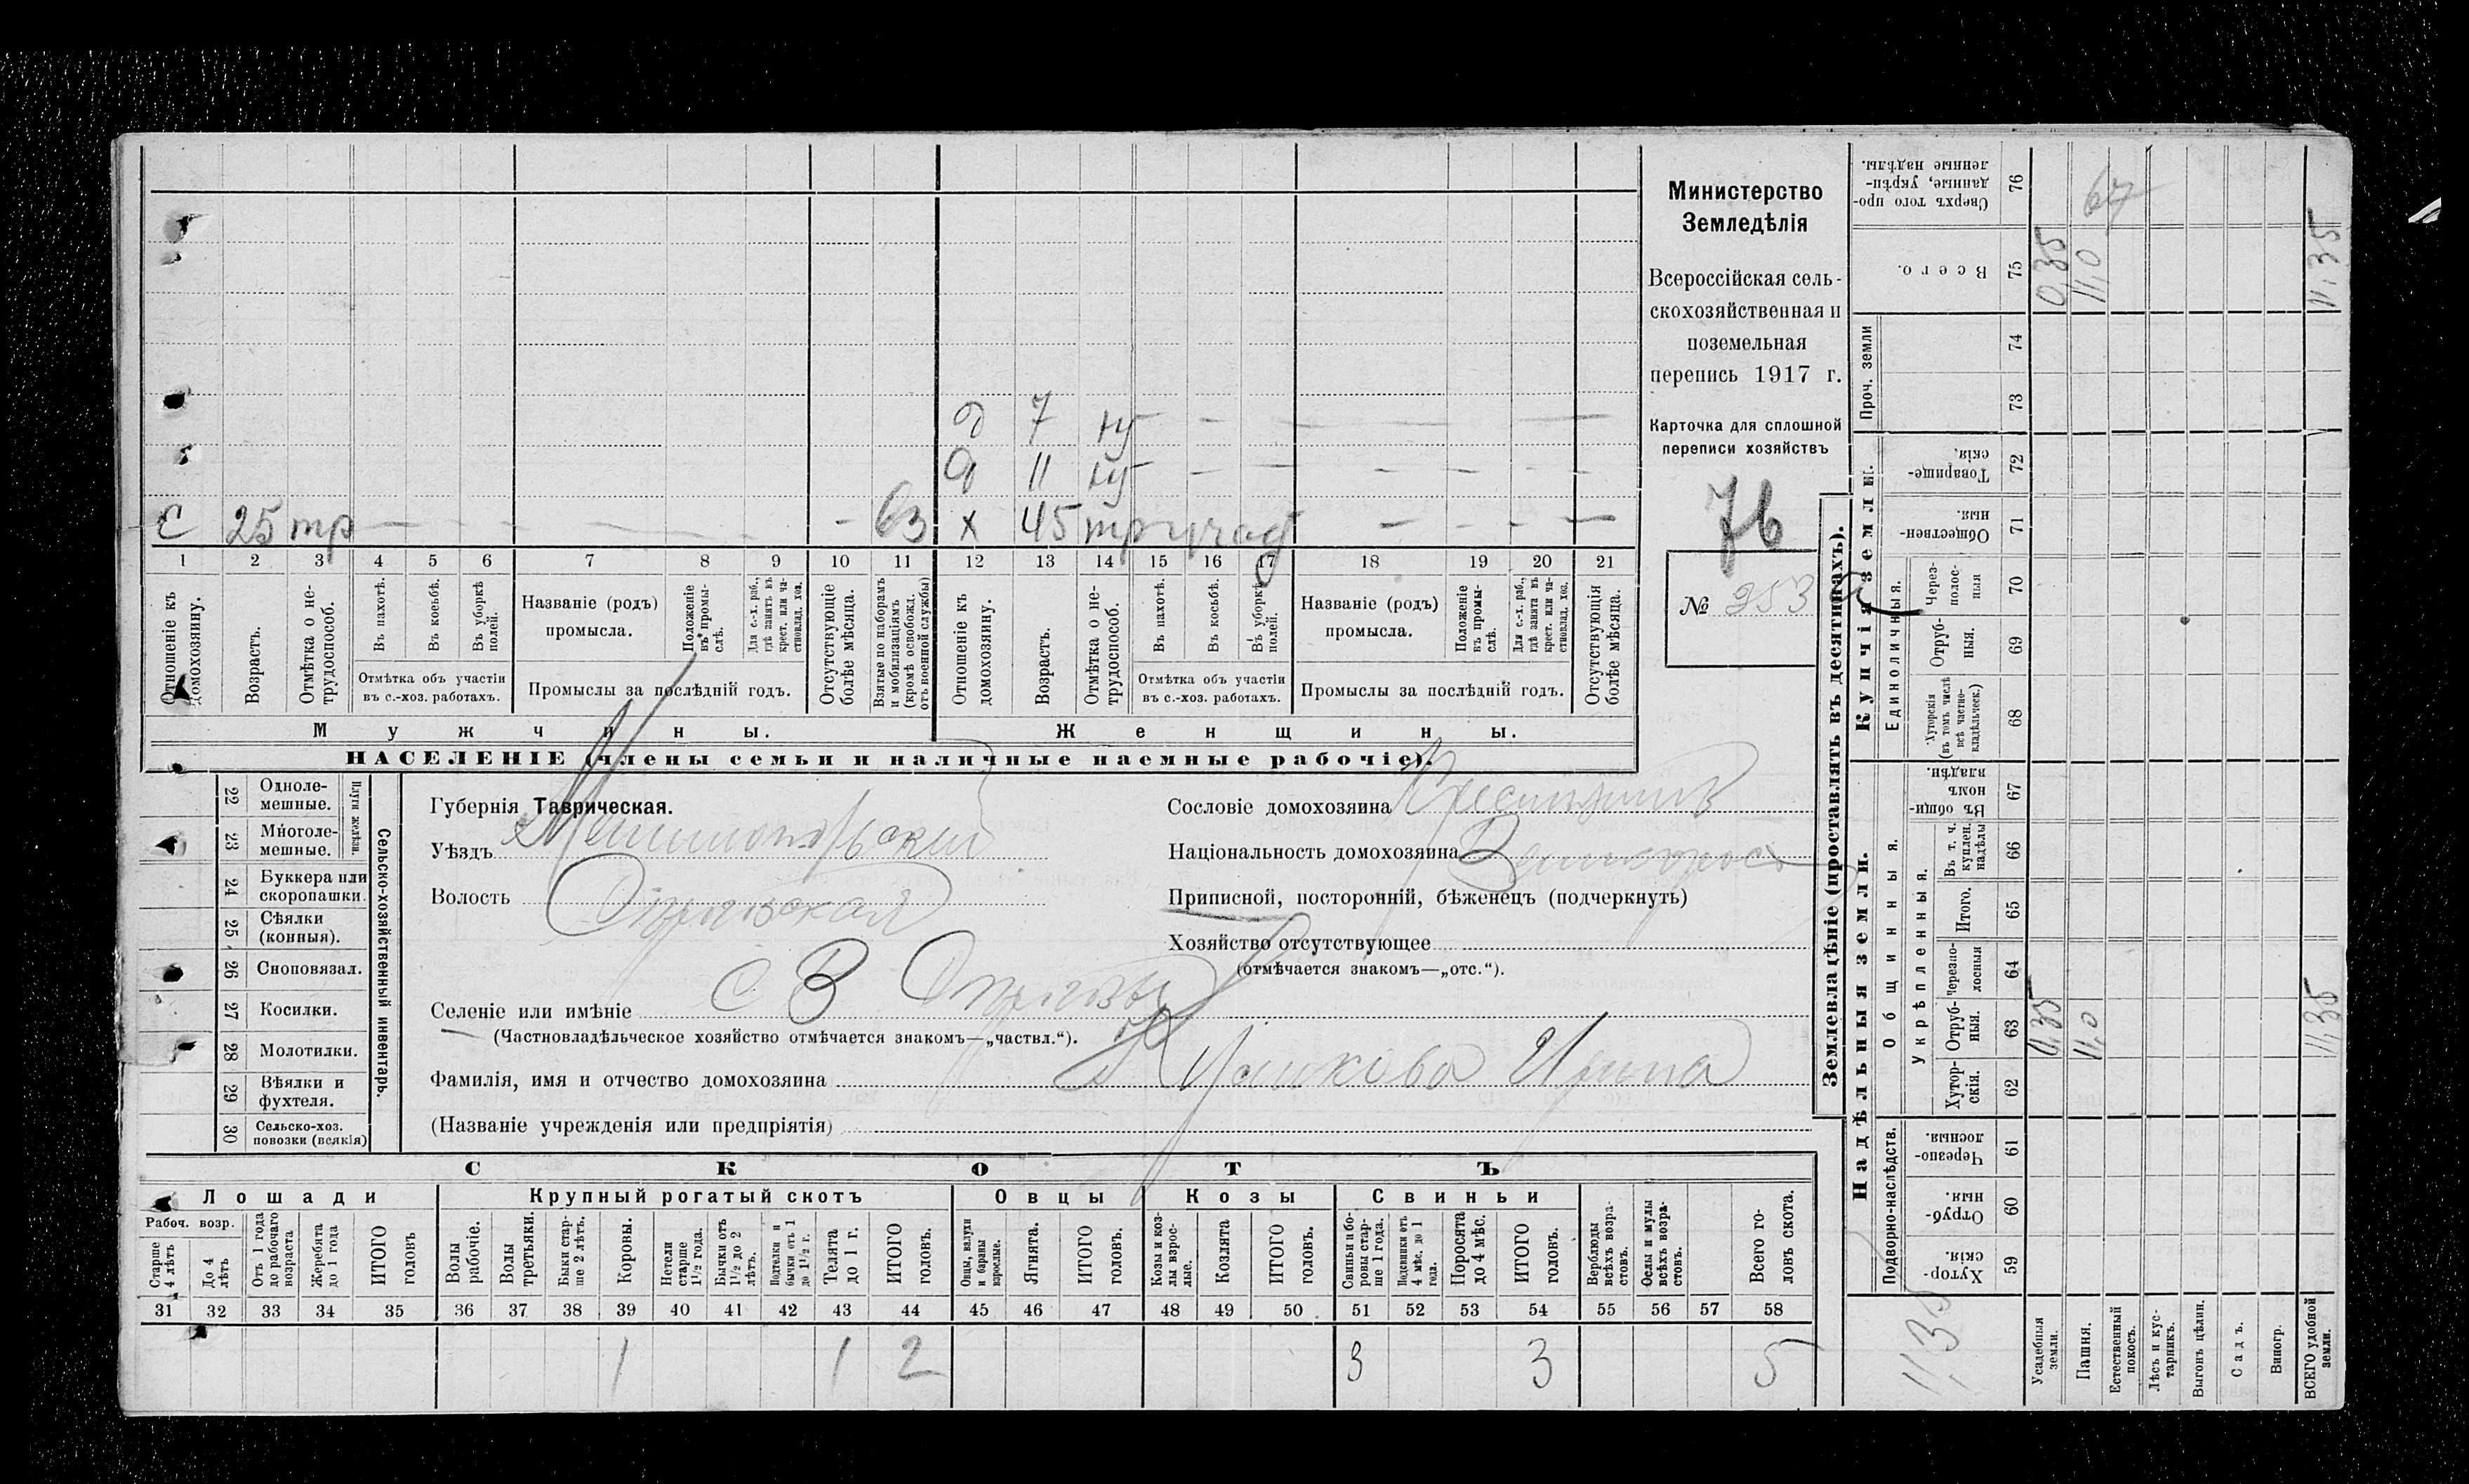 Министерство
Земледѣлія
Всероссійская сель-
скохозяйственная и
поземельная
перепись 1917 г.
Карточка для сплошной
переписи хозяйствъ
76
№ 253
д 7 —
д 11 —
С 25 тр — — — — — х 45 тр — — — —
1 2 3 4 5 6 7 8 9 10 11 12 13 14 15 16 17 18 19 20 21
Отношеніе къ домохозяину.
Возрастъ.
Отмѣтка о не-трудоспособ.
Въ пахотѣ.
Въ косьбѣ.
Въ уборкѣ полей.
Отмѣтка объ участіи
въ с.-хоз. работахъ.
Названіе (родъ)
промысла.
Положеніе въ промы-слѣ.
Для с.-х. раб., гдѣ занятъ въ крест. или ча-стновлад. хоз.
Промыслы за послѣдній годъ.
Отсутствующіе болѣе мѣсяца.
Взятые по наборамъ и мобилизаціямъ (кромѣ освобожд. отъ военной службы)
Отношеніе къ домохозяину.
Возрастъ.
Отмѣтка о не-трудоспособ.
Въ пахотѣ.
Въ косьбѣ.
Въ уборкѣ полей.
Отмѣтка объ участіи
въ с.-хоз. работахъ.
Названіе (родъ)
промысла.
Положеніе въ промы-слѣ.
Для с.-х. раб., гдѣ занята въ крест. или ча-стновлад. хоз.
Промыслы за послѣдній годъ.
Отсутствующія болѣе мѣсяца.
Мужчины. Женщины.
НАСЕЛЕНІЕ (члены семьи и наличные наемные рабочіе).
22 Одноле-мешные.
23 Многоле-мешные.
Плуги желѣзн.
24 Буккера или скоропашки.
25 Сѣялки (конныя).
26 Сноповязал.
27 Косилки.
28 Молотилки.
29 Вѣялки и фухтеля.
30 Сельско-хоз. повозки (всякія)
Сельско-хозяйственный инвентарь.
Губернія Таврическая.
Уѣздъ Мелитопольскій
Волость
Селеніе или имѣніе С В
(Частновладѣльческое хозяйство отмѣчается знакомъ—„частвл.“).
Фамилія, имя и отчество домохозяина Ирина
(Названіе учрежденія или предпріятія)
Сословіе домохозяина Крестьянинъ
Національность домохозяина Великоросс
Приписной, посторонній, бѣженецъ (подчеркнуть)
Хозяйство отсутствующее
(отмѣчается знакомъ—„отс.“).
СКОТЪ
Лошади Крупный рогатый скотъ Овцы Козы Свиньи
Рабоч. возр.
Старше 4 лѣтъ
До 4 лѣтъ
Отъ 1 года до рабочаго возраста
Жеребята до 1 года
ИТОГО головъ
Волы рабочіе.
Волы третьяки.
Быки стар-ше 2 лѣтъ.
Коровы.
Нетели старше 1½ года.
Бычки отъ 1½ до 2 лѣтъ.
Подтелки и бычки отъ 1 до 1½ г.
Телята до 1 г.
ИТОГО головъ.
Овцы, валухи и бараны взрослые.
Ягнята.
ИТОГО головъ.
Козы и коз-лы взрос-лые.
Козлята
ИТОГО головъ.
Свиньи и бо-ровы стар-ше 1 года.
Подсвинки отъ 4 мѣс. до 1 года.
Поросята до 4 мѣс.
ИТОГО головъ.
Верблюды всѣхъ возра-стовъ.
Ослы и мулы всѣхъ возра-стовъ.
Всего го-ловъ скота.
31 32 33 34 35 36 37 38 39 40 41 42 43 44 45 46 47 48 49 50 51 52 53 54 55 56 57 58
1 1 2 3 3 5
Землевладѣніе (проставлять въ десятинахъ).
Купчія земли.
Надѣльныя земли.
Сверхъ того про-данные, укрѣп-ленные надѣлы. 76 67
Всего. 75 0,35 11,0 11,35
Проч. земли 74
73
Товарище-скія. 72
Обществен-ныя. 71
Единоличныя.
Через-полос-ныя 70
Отруб-ныя. 69
Хуторскія (въ томъ числѣ всѣ частно-владѣльческ.) 68
Общинныя.
Въ общи-номъ владѣн. 67
Укрѣпленныя.
Въ т. ч. куплен. надѣлы 66
Итого. 65
Черезпо-лосныя 64
Отруб-ныя. 63 0,35 11,0 11,35
Хутор-скія. 62
Подворно-наслѣдств.
Черезпо-лосныя. 61
Отруб-ныя. 60
Хутор-скія. 59
11,35
Усадебныя земли.
Пашня.
Естественный покосъ.
Лѣсъ и кус-тарникъ.
Выгонъ цѣлин.
Садъ.
Виногр.
ВСЕГО удобной земли.